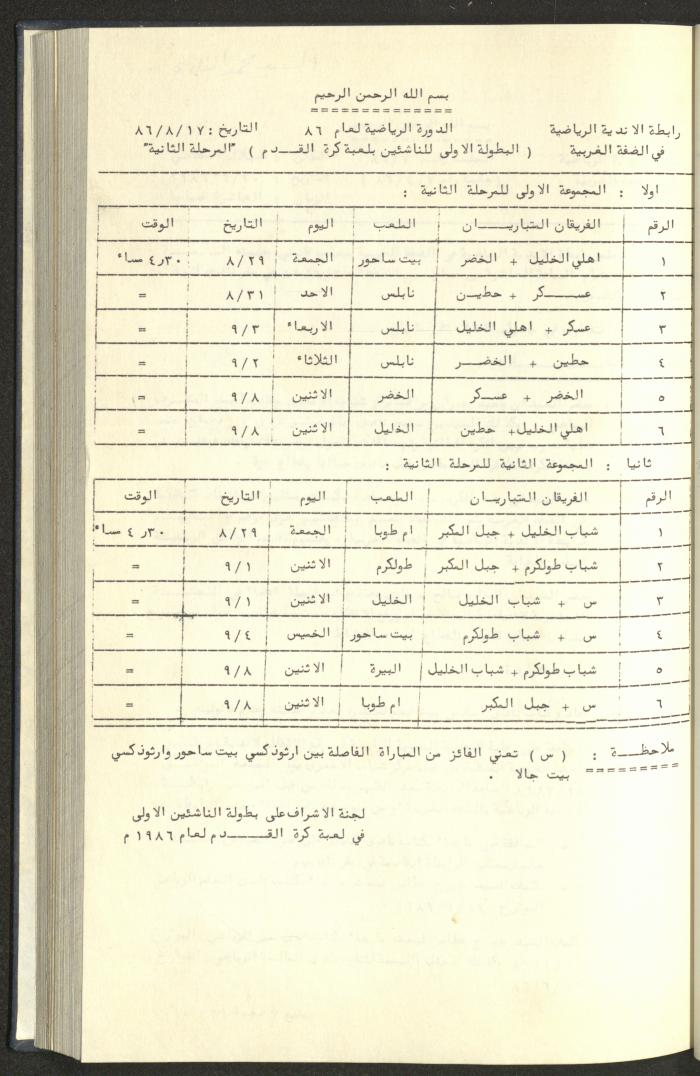 بسم الله الرحمن الرحيم
=============
رابطة الاندية الرياضية الدورة الرياضية لعام ٨٦ التاريخ : ٨٦/٨/١٧
في الضفة الغربية ( البطولة الاولى للناشئين بلعبة كرة القـــدم ) "المرحلة الثانية"
اولا : المجموعة الاولى للمرحلة الثانية :
الرقم الفريقان المتباريـــان الملعب اليوم التاريخ الوقت
١ اهلي الخليل + الخضر بيت ساحور الجمعة ٨/٢٩ ٣٠ر٤ مساء
٢ عســـكر + حطيـن نابلس الاحد ٨/٣١ =
٣ عسكر + اهلي الخليل نابلس الاربعاء ٩/٣ =
٤ حطين + الخضــر نابلس الثلاثاء ٩/٢ =
٥ الخضر + عسـكر الخضر الاثنين ٩/٨ =
٦ اهلي الخليل+ حطين الخليل الاثنين ٩/٨ =
ثانيا : المجموعة الثانية للمرحلة الثانية :
الرقم الفريقان المتباريــان الملعب اليوم التاريخ الوقت
١ شباب الخليل + جبل المكبر ام طوبا الجمعة ٨/٢٩ ٣٠ر ٤ مساء
٢ شباب طولكرم + جبل المكبر طولكرم الاثنين ٩/١ =
٣ س + شباب الخليل الخليل الاثنين ٩/١ =
٤ س + شباب طولكرم بيت ساحور الخميس ٩/٤ =
٥ شباب طولكرم + شباب الخليل البيرة الاثنين ٩/٨ =
٦ س + جبل المكبر ام طوبا الاثنين ٩/٨ =
ملاحظـــة : ( س ) تعني الفائز من المباراة الفاصلة بين ارثوذكسي بيت ساحور وارثوذكسي
بيت جالا .
لجنة الاشراف على بطولة الناشئين الاولى
في لعبة كرة القـــــدم لعام ١٩٨٦ م